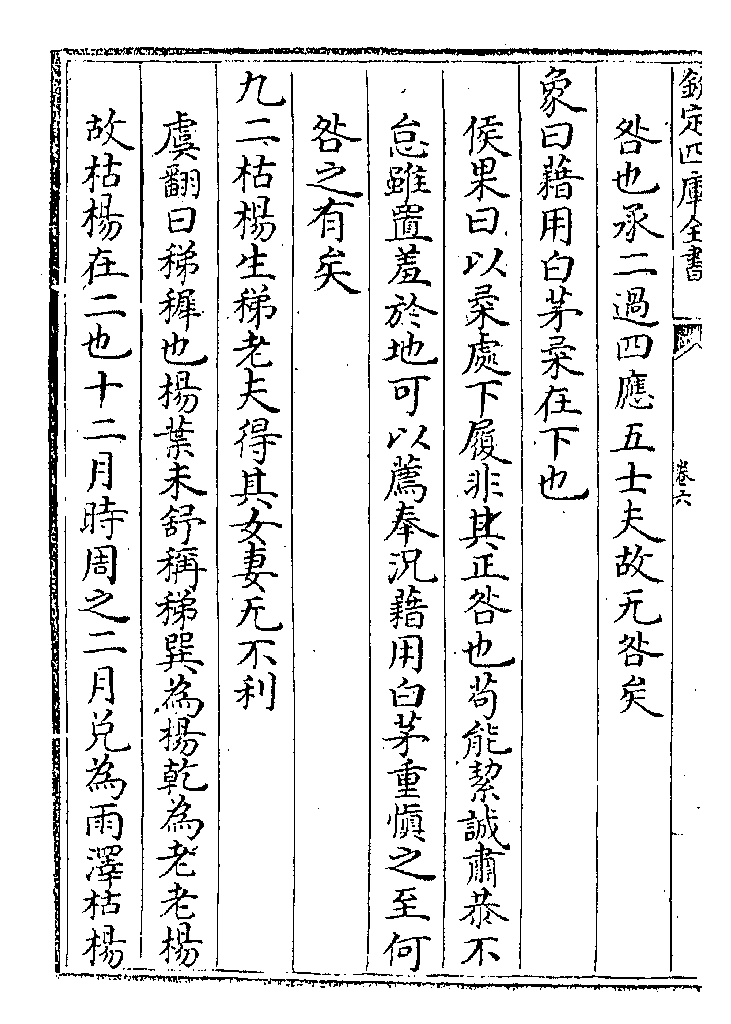 欽定四庫全書
卷六
咎也承二過四應五士夫故无咎矣
象曰藉用白茅柔在下也
侯果曰以柔處下履非其正咎也苟能絜誠肅恭不
怠雖置羞於地可以薦奉況藉用白茅重慎之至何
咎之有矣
九二枯楊生稊老夫得其女妻无不利
虞翻曰稊穉也楊葉未舒稱稊巽為楊乾為老老楊
故枯楊在二也十二月時周之二月兌為雨澤枯楊